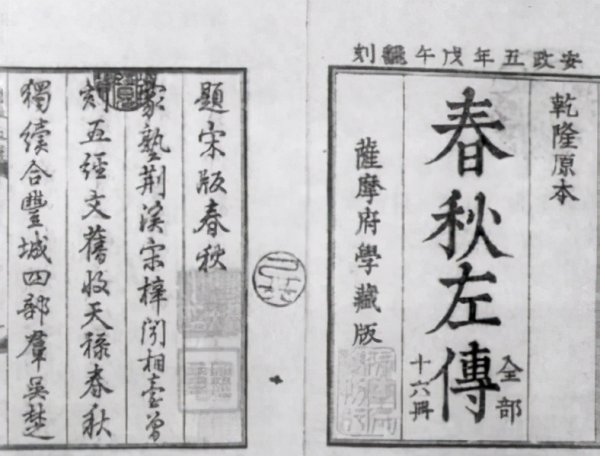 安政五年戊午飜刻
乾隆原本
春秋左傳
全部
十六冊
薩摩府學藏版
題宋版春秋
家塾荊溪宋梓聞相臺曾
刻五經文舊收天祿春秋
獨續合豐城四部羣吳楚